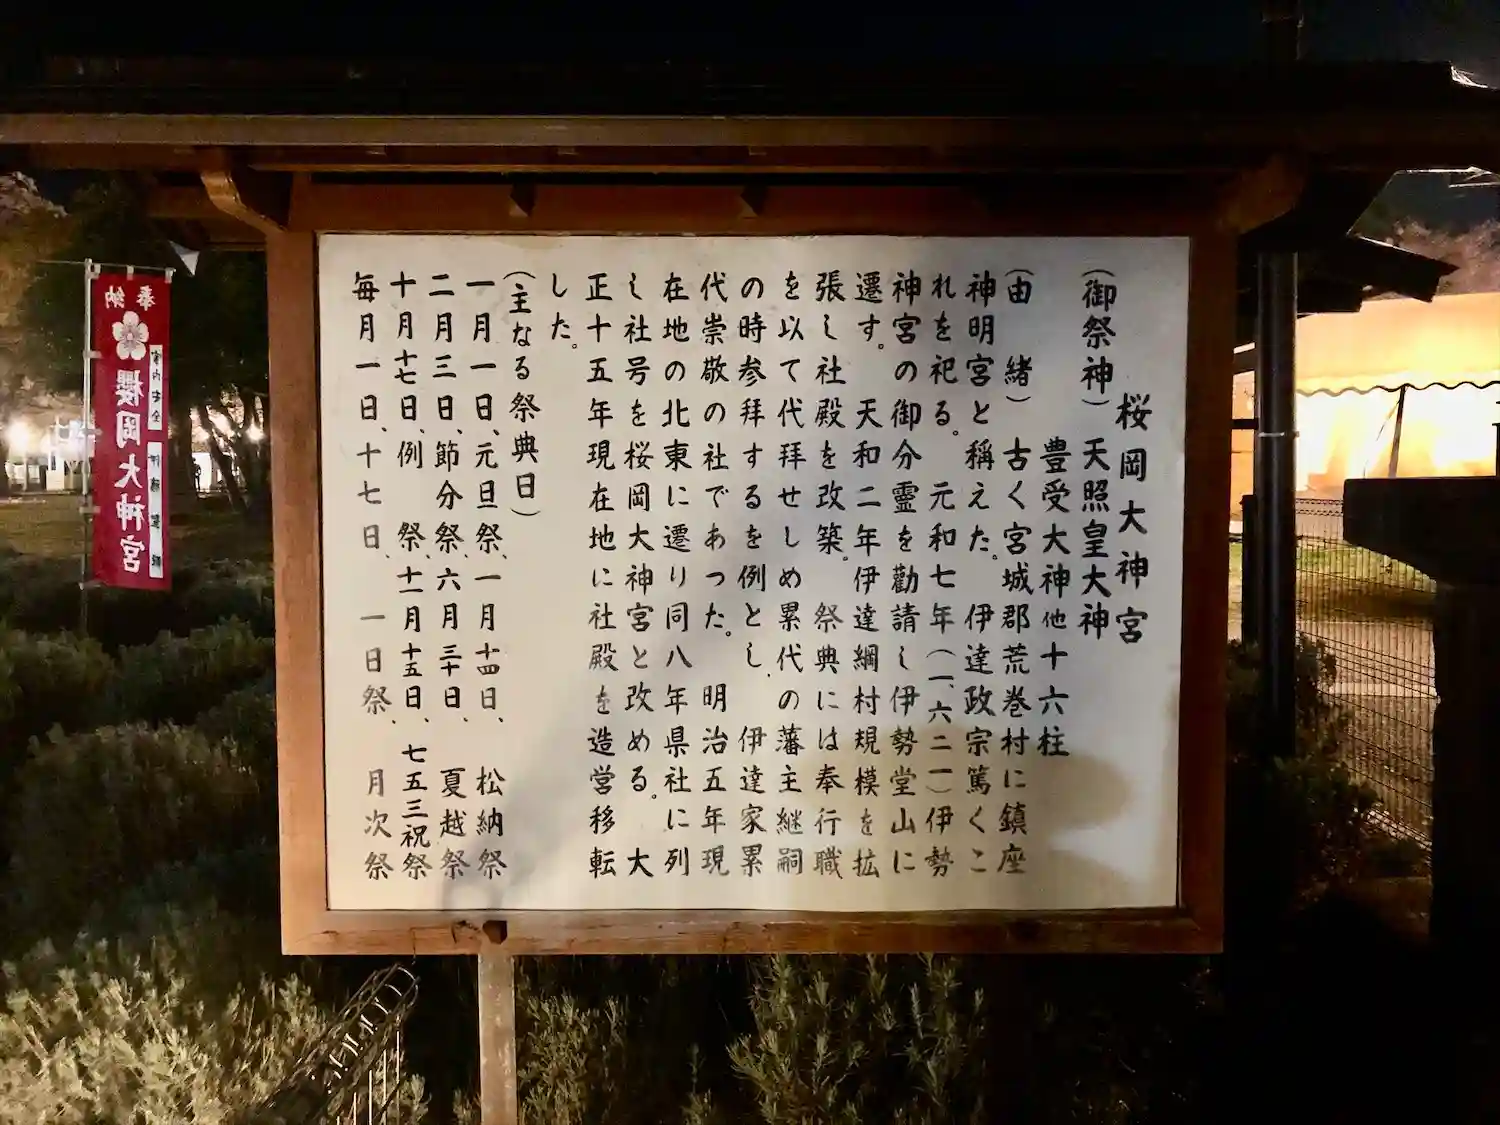 桜岡大神宮
(御祭神) 天照皇大神
豊受大神他十六柱
(由 緒) 古く宮城郡荒巻村に鎮座
神明宮と稱えた。 伊達政宗篤くこ
れを祀る。 元和七年(一、六二一)伊勢
神宮の御分霊を勸請し伊勢堂山に
遷す。 天和二年伊達綱村規模を拡
張し社殿を改築。 祭典には奉行職
を以て代拜せしめ累代の藩主継嗣
の時参拜するを例とし、 伊達家累
代崇敬の社であった。 明治五年現
在地の北東に遷り同八年県社に列
し社号を桜岡大神宮と改める。 大
正十五年現在地に社殿を造営移転
した。
(主なる祭典日)
一月一日、元旦祭、一月十四日、 松納祭
二月三日、節分祭、六月三十日、 夏越祭
十月十七日、例 祭、十一月十五日、七五三祝祭
毎月一日、十七日、 一日祭、 月次祭
奉納
櫻岡大神宮